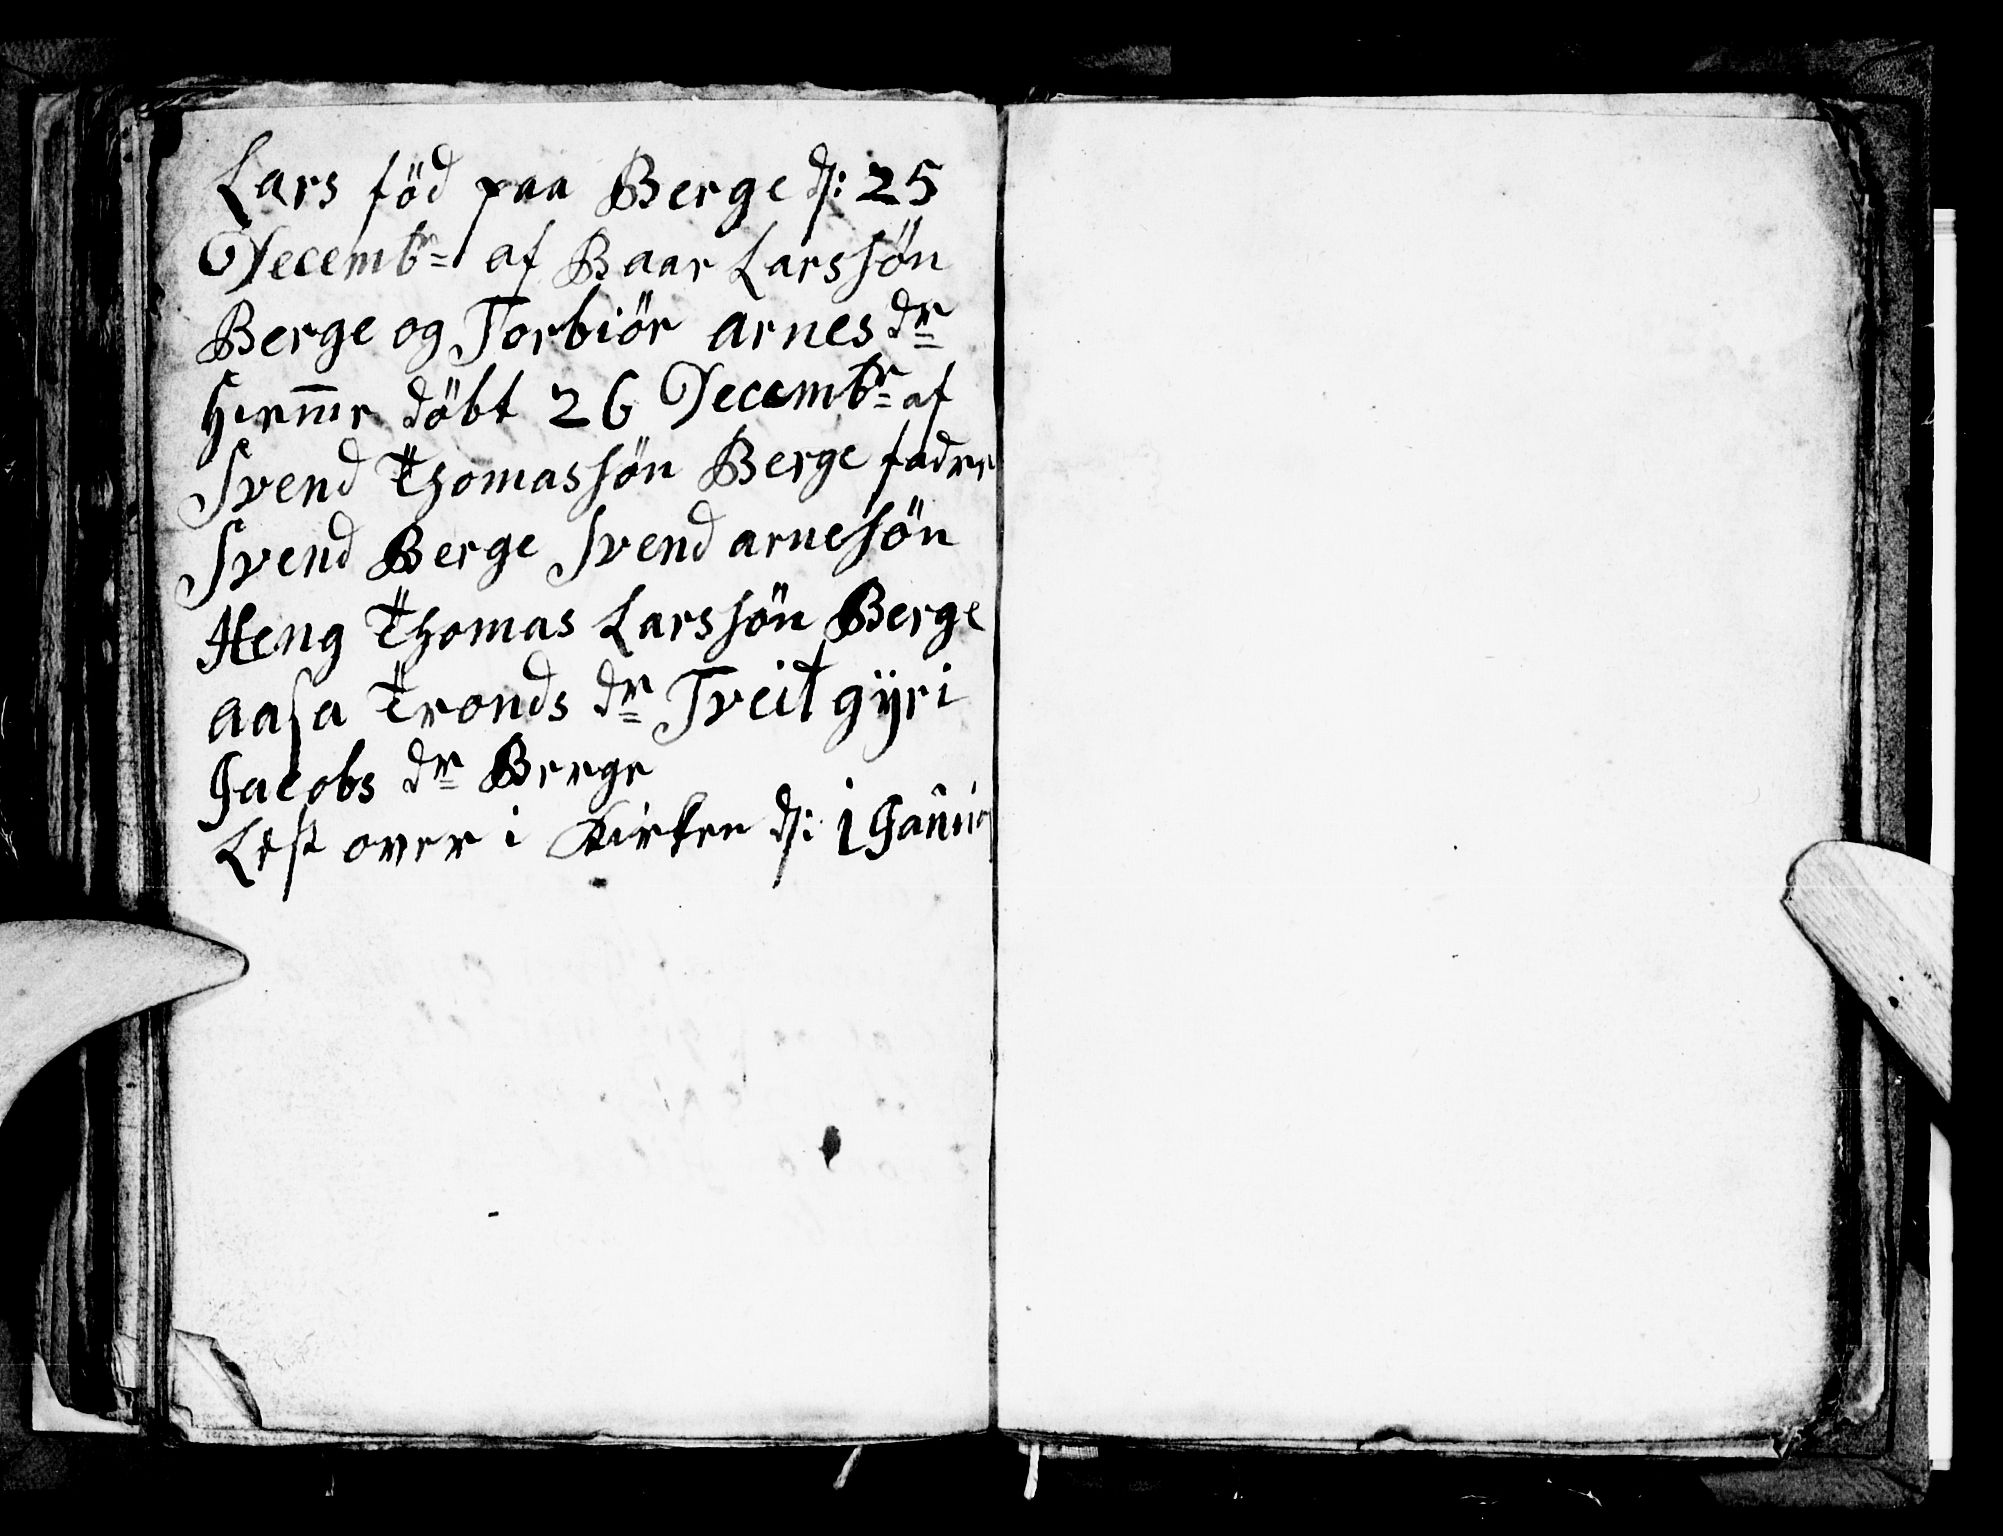 Lars föd paa Berge d: 25
Decembr= af Baar Larssön
Berge og Torbiör arnes dr=
döbt 26 Decembr= af
Svend Thomassön Berge fadrer
Svend Berge Svend arnesön
Heng Thomas Larssön Berge
aasa Tronds dr= Tveit gÿri
Jacobs dr= Berge
Lest over i Kirken d: 1 Januar